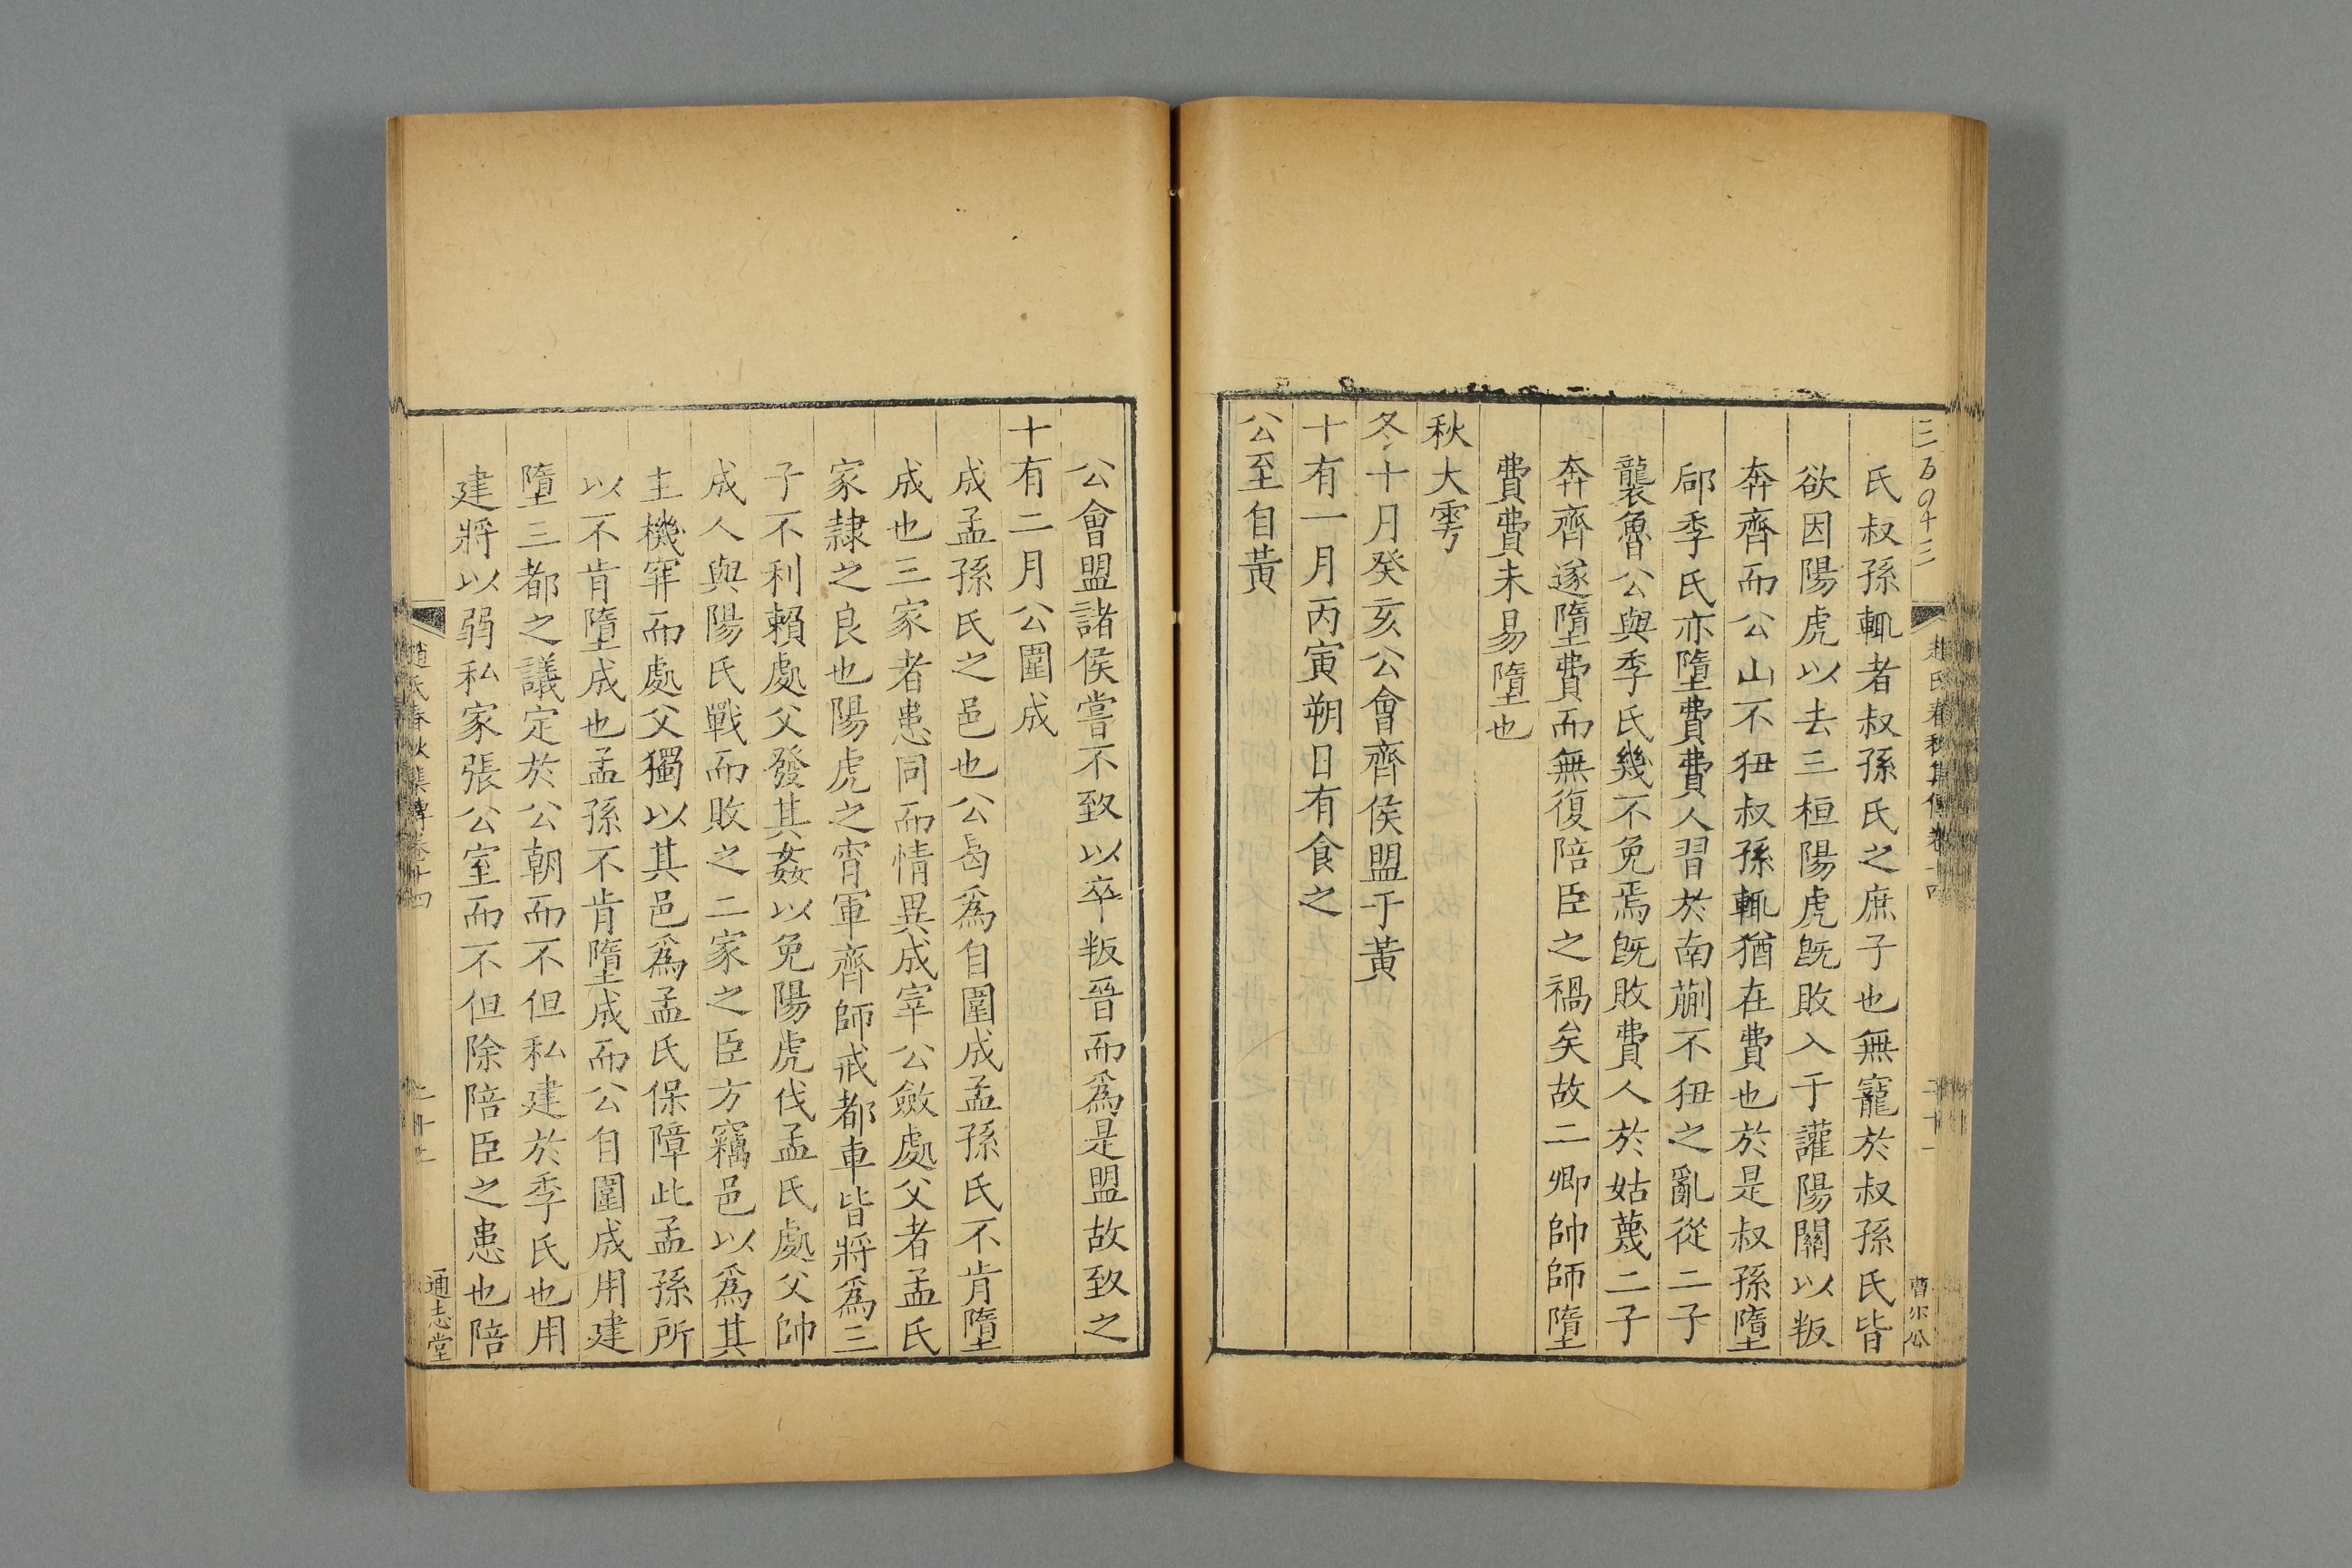 氏叔孫輒者叔孫氏之庶子也無寵於叔孫氏皆
欲因陽虎以去三桓陽虎旣敗入于讙陽關以叛
奔齊而公山不狃叔孫輒猶在費也於是叔孫墮
郈季氏亦墮費費人習於南蒯不狃之亂從二子
襲魯公與季氏幾不免焉旣敗費人於姑蔑二子
奔齊遂墮費而無復陪臣之禍矣故二卿帥師墮
費費未易墮也
秋大雩
冬十月癸亥公會齊侯盟于黃
十有一月丙寅朔日有食之
公至自黃
公會盟諸侯嘗不致以卒叛晉而爲是盟故致之
十有二月公圍成
成孟孫氏之邑也公曷爲自圍成孟孫氏不肯墮
成也三家者患同而情異成宰公斂處父者孟氏
家隷之良也陽虎之宵軍齊師戒都車皆將爲三
子不利賴處父發其姦以免陽虎伐孟氏處父帥
成人與陽氏戰而敗之二家之臣方竊邑以爲其
主機穽而處父獨以其邑爲孟氏保障此孟孫所
以不肯墮成也孟孫不肯墮成而公自圍成用建
墮三都之議定於公朝而不但私建於季氏也用
建將以弱私家張公室而不但除陪臣之患也陪
趙氏春秋集傳卷十四
通志堂